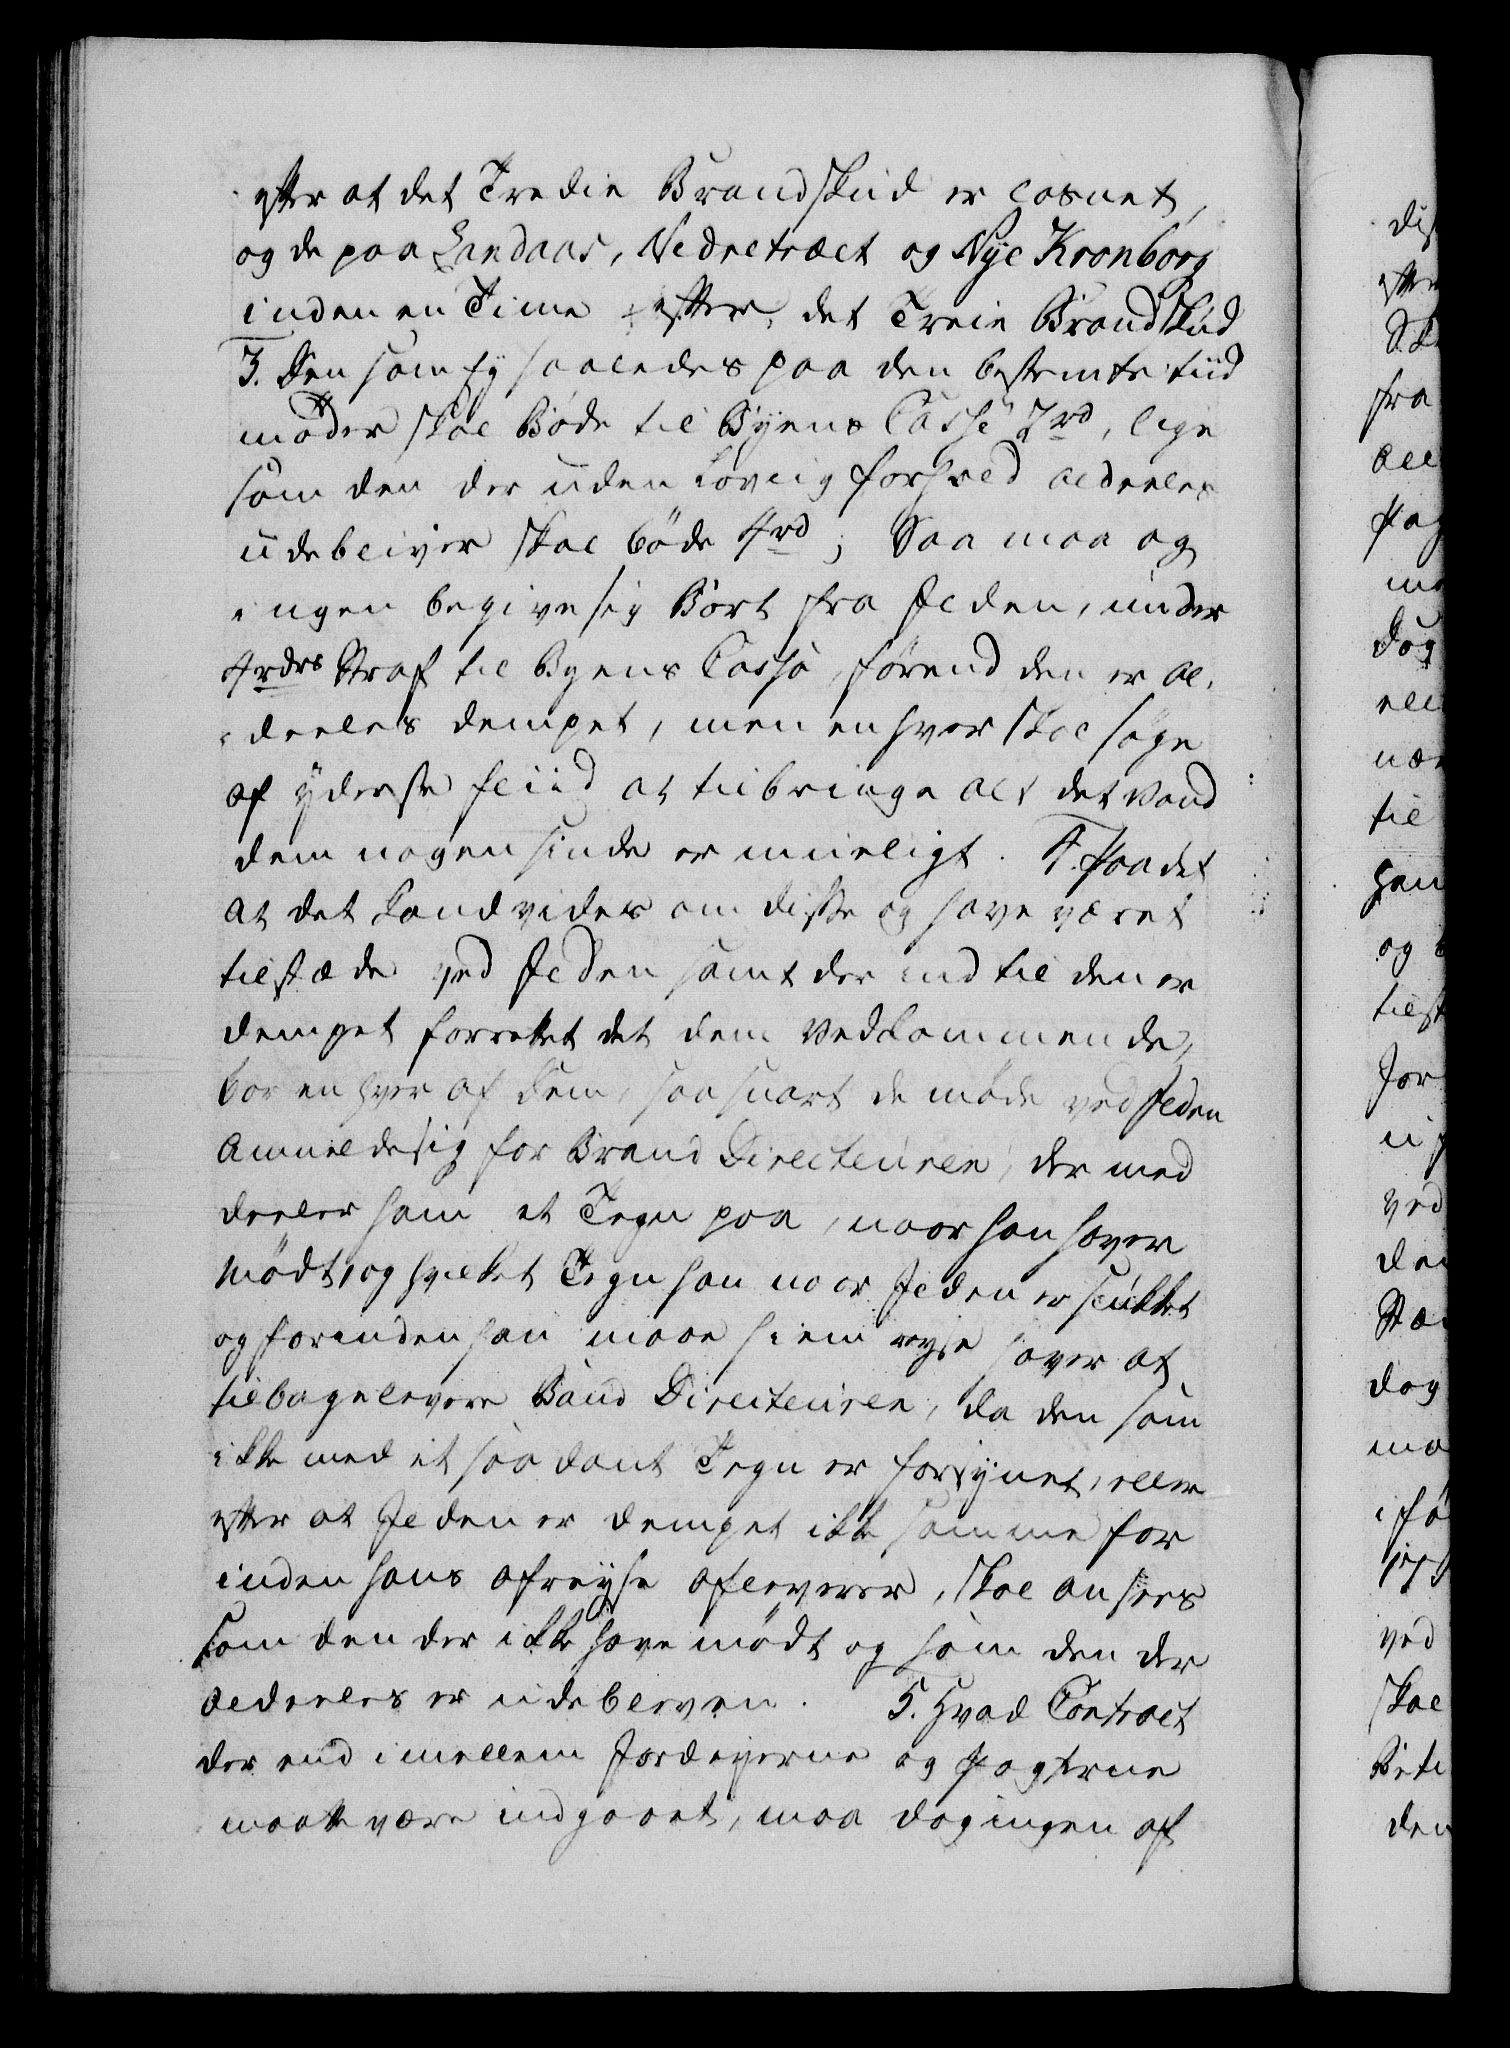 efter at det Tredie Brandskud er løsnet,
og de paa Landaas, Nedretræet og Nye Kronborg
inden en Time efter, det Treie Brandskud
3. Den som ej saaledes paa den bestemte tiid
møder skal Bøde til Byens Casse 2rd, lige
som den der uden Lovlig forfald aldeeles
udebliver skal bøde 4rd; Saa maa og
ingen begive sig Bort fra Ilden, under
4rdrs Straf til Byens Cassa,førend den er al,
deeles dempet, men enhver skal søge
af yderste fliid at tilbringe alt det Vand
dem nogensinde er mueligt. 4. Paa det
at det kand vides om disse og have været
tilstæde ved Ilden samt der ind til den er
dempet forrettet det dem Vedkommende,
bør en hver af dem, saa snart de møde ved Ilden
Anmelde sig for Brand Directeuren, der med
deeler ham et Tegn paa, naar han haver
Mødt, og hvilket Tegn han naar Ilden er slukket
og forinden han maae hiem reyse haver at
tilbagelevere Band Directeuren, da den som
ikke med et saadant Tegn er forsynet, eller
efter at Ilden er dempet ikke samme for
inden hans afreyse afleverer, skal ansees
som den der ikke have mødt og som den der
aldeeles er udebleven. 5. Hvad Contract
der end imellem Jordeyerne og Pagterne
maatte være indgaaet, maa dog ingen af